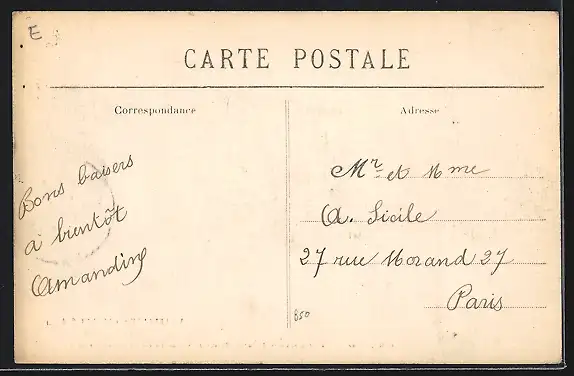 E
CARTE POSTALE
Correspondance
Adresse
Bons baisers
à bientôt
Amandine
Mr et Mme
A. Sicile
27 rue Morand 27
Paris
850